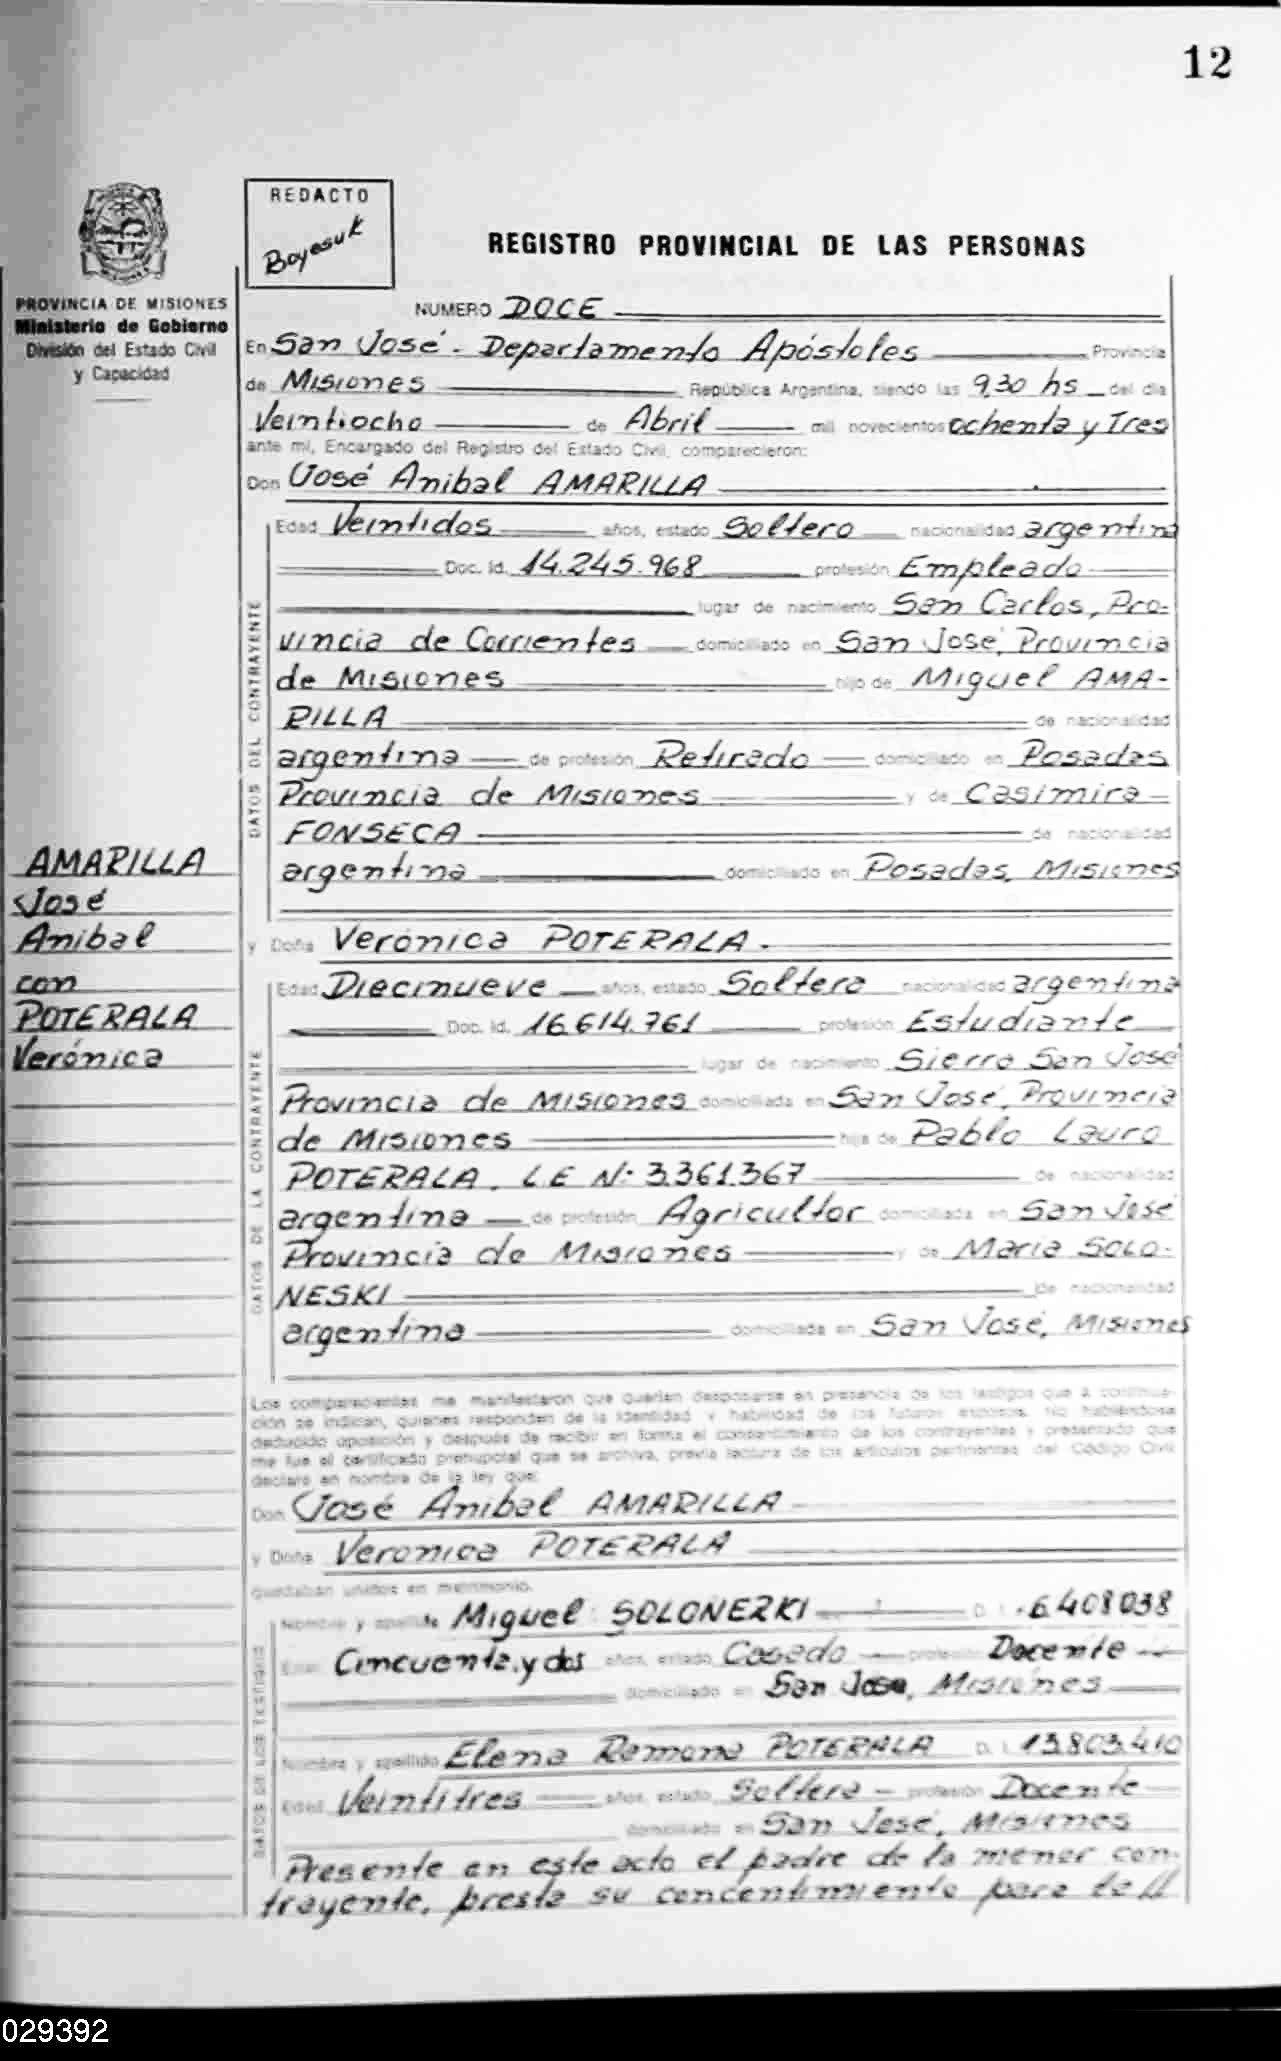 12
REDACTO
Boyesuk
REGISTRO PROVINCIAL DE LAS PERSONAS
PROVINCIA DE MISIONES
Ministerio de Gobierno
División del Estado Civil
y Capacidad
NUMERO DOCE
En San José - Departamento Apóstoles Provincia
de Misiones República Argentina, siendo las 9,30 hs del día
Veintiocho de Abril mil novecientos ochenta y Tres
ante mí, Encargado del Registro del Estado Civil, comparecieron:
Don José Anibal AMARILLA
DATOS DEL CONTRAYENTE
Edad Veintidos años, estado Soltero nacionalidad argentina
Doc. Id. 14.245.968 profesión Empleado
lugar de nacimiento San Carlos, Pro-
vincia de Corrientes domiciliado en San José, Provincia
de Misiones hijo de Miguel AMA-
RILLA de nacionalidad
argentina de profesión Retirado domiciliado en Posadas
Provincia de Misiones y de Casimira
FONSECA de nacionalidad
argentina domiciliado en Posadas, Misiones
AMARILLA
José
Anibal
con
POTERALA
Verónica
y Doña Verónica POTERALA.
DATOS DE LA CONTRAYENTE
Edad Diecinueve años, estado Soltera nacionalidad argentina
Doc. Id. 16.614.761 profesión Estudiante
lugar de nacimiento Sierra San José
Provincia de Misiones domiciliada en San José, Provincia
de Misiones hija de Pablo Lauro
POTERALA. L.E Nº 3.361.367 de nacionalidad
argentina de profesión Agricultor domiciliada en San José
Provincia de Misiones y de María SOLO-
NESKI de nacionalidad
argentina domiciliada en San José, Misiones
Los comparecientes me manifestaron que querían desposarse en presencia de los testigos que a continua-
ción se indican, quienes responden de la identidad y habilidad de los futuros esposos. No habiéndose
deducido oposición y después de recibir en forma el consentimiento de los contrayentes y presentado que
me fue el certificado prenupcial que se archiva, previa lectura de los artículos pertinentes del Código Civil
declaro en nombre de la ley que:
Don José Anibal AMARILLA
y Doña Veronica POTERALA
quedaban unidos en matrimonio.
DATOS DE LOS TESTIGOS
Nombre y apellido Miguel SOLONEZKI D. I. 6.408.038
Edad Cincuenta y dos años, estado Casado profesión Docente
domiciliado en San Jose, Misiones
Nombre y apellido Elena Ramona POTERALA D. I. 13.803.410
Edad Veintitres años, estado Soltera profesión Docente
domiciliado en San José, Misiones
Presente en este acto el padre de la menor con-
trayente, presta su concentimiento para tal//
029392